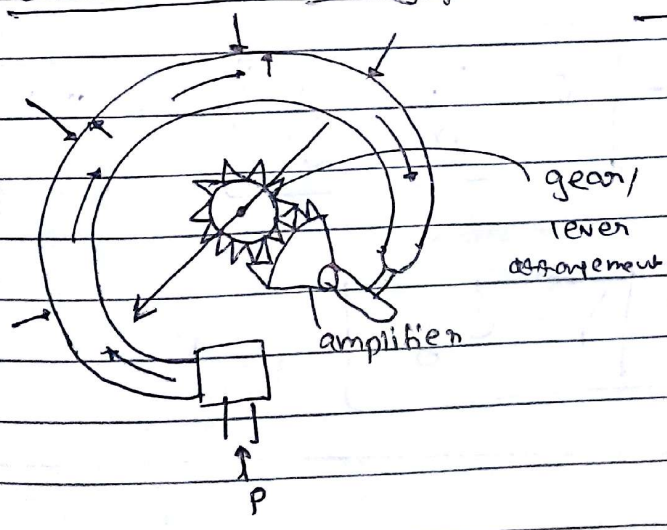 gear/
lever
arrangement
amplifier
P